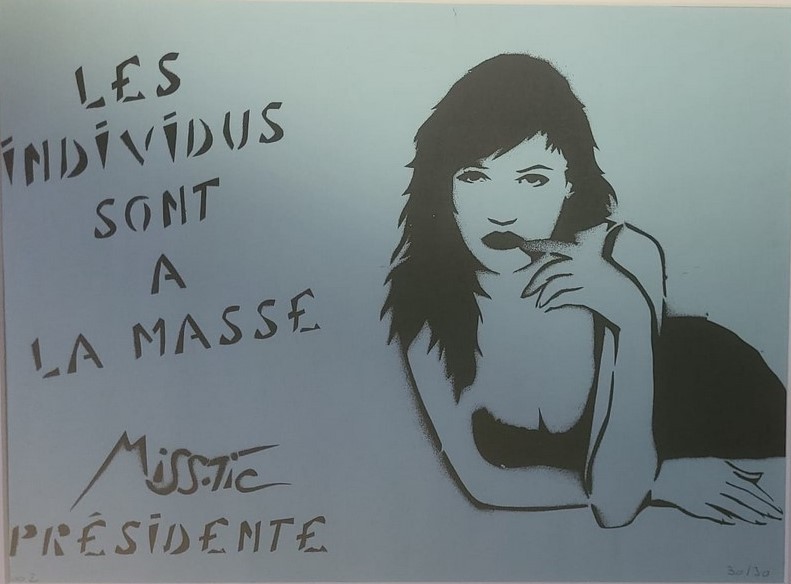 LES
iNDiViDUS
SONT
A
LA MASSE
MiSS.Tic
PRÉSiDENTE
30/30